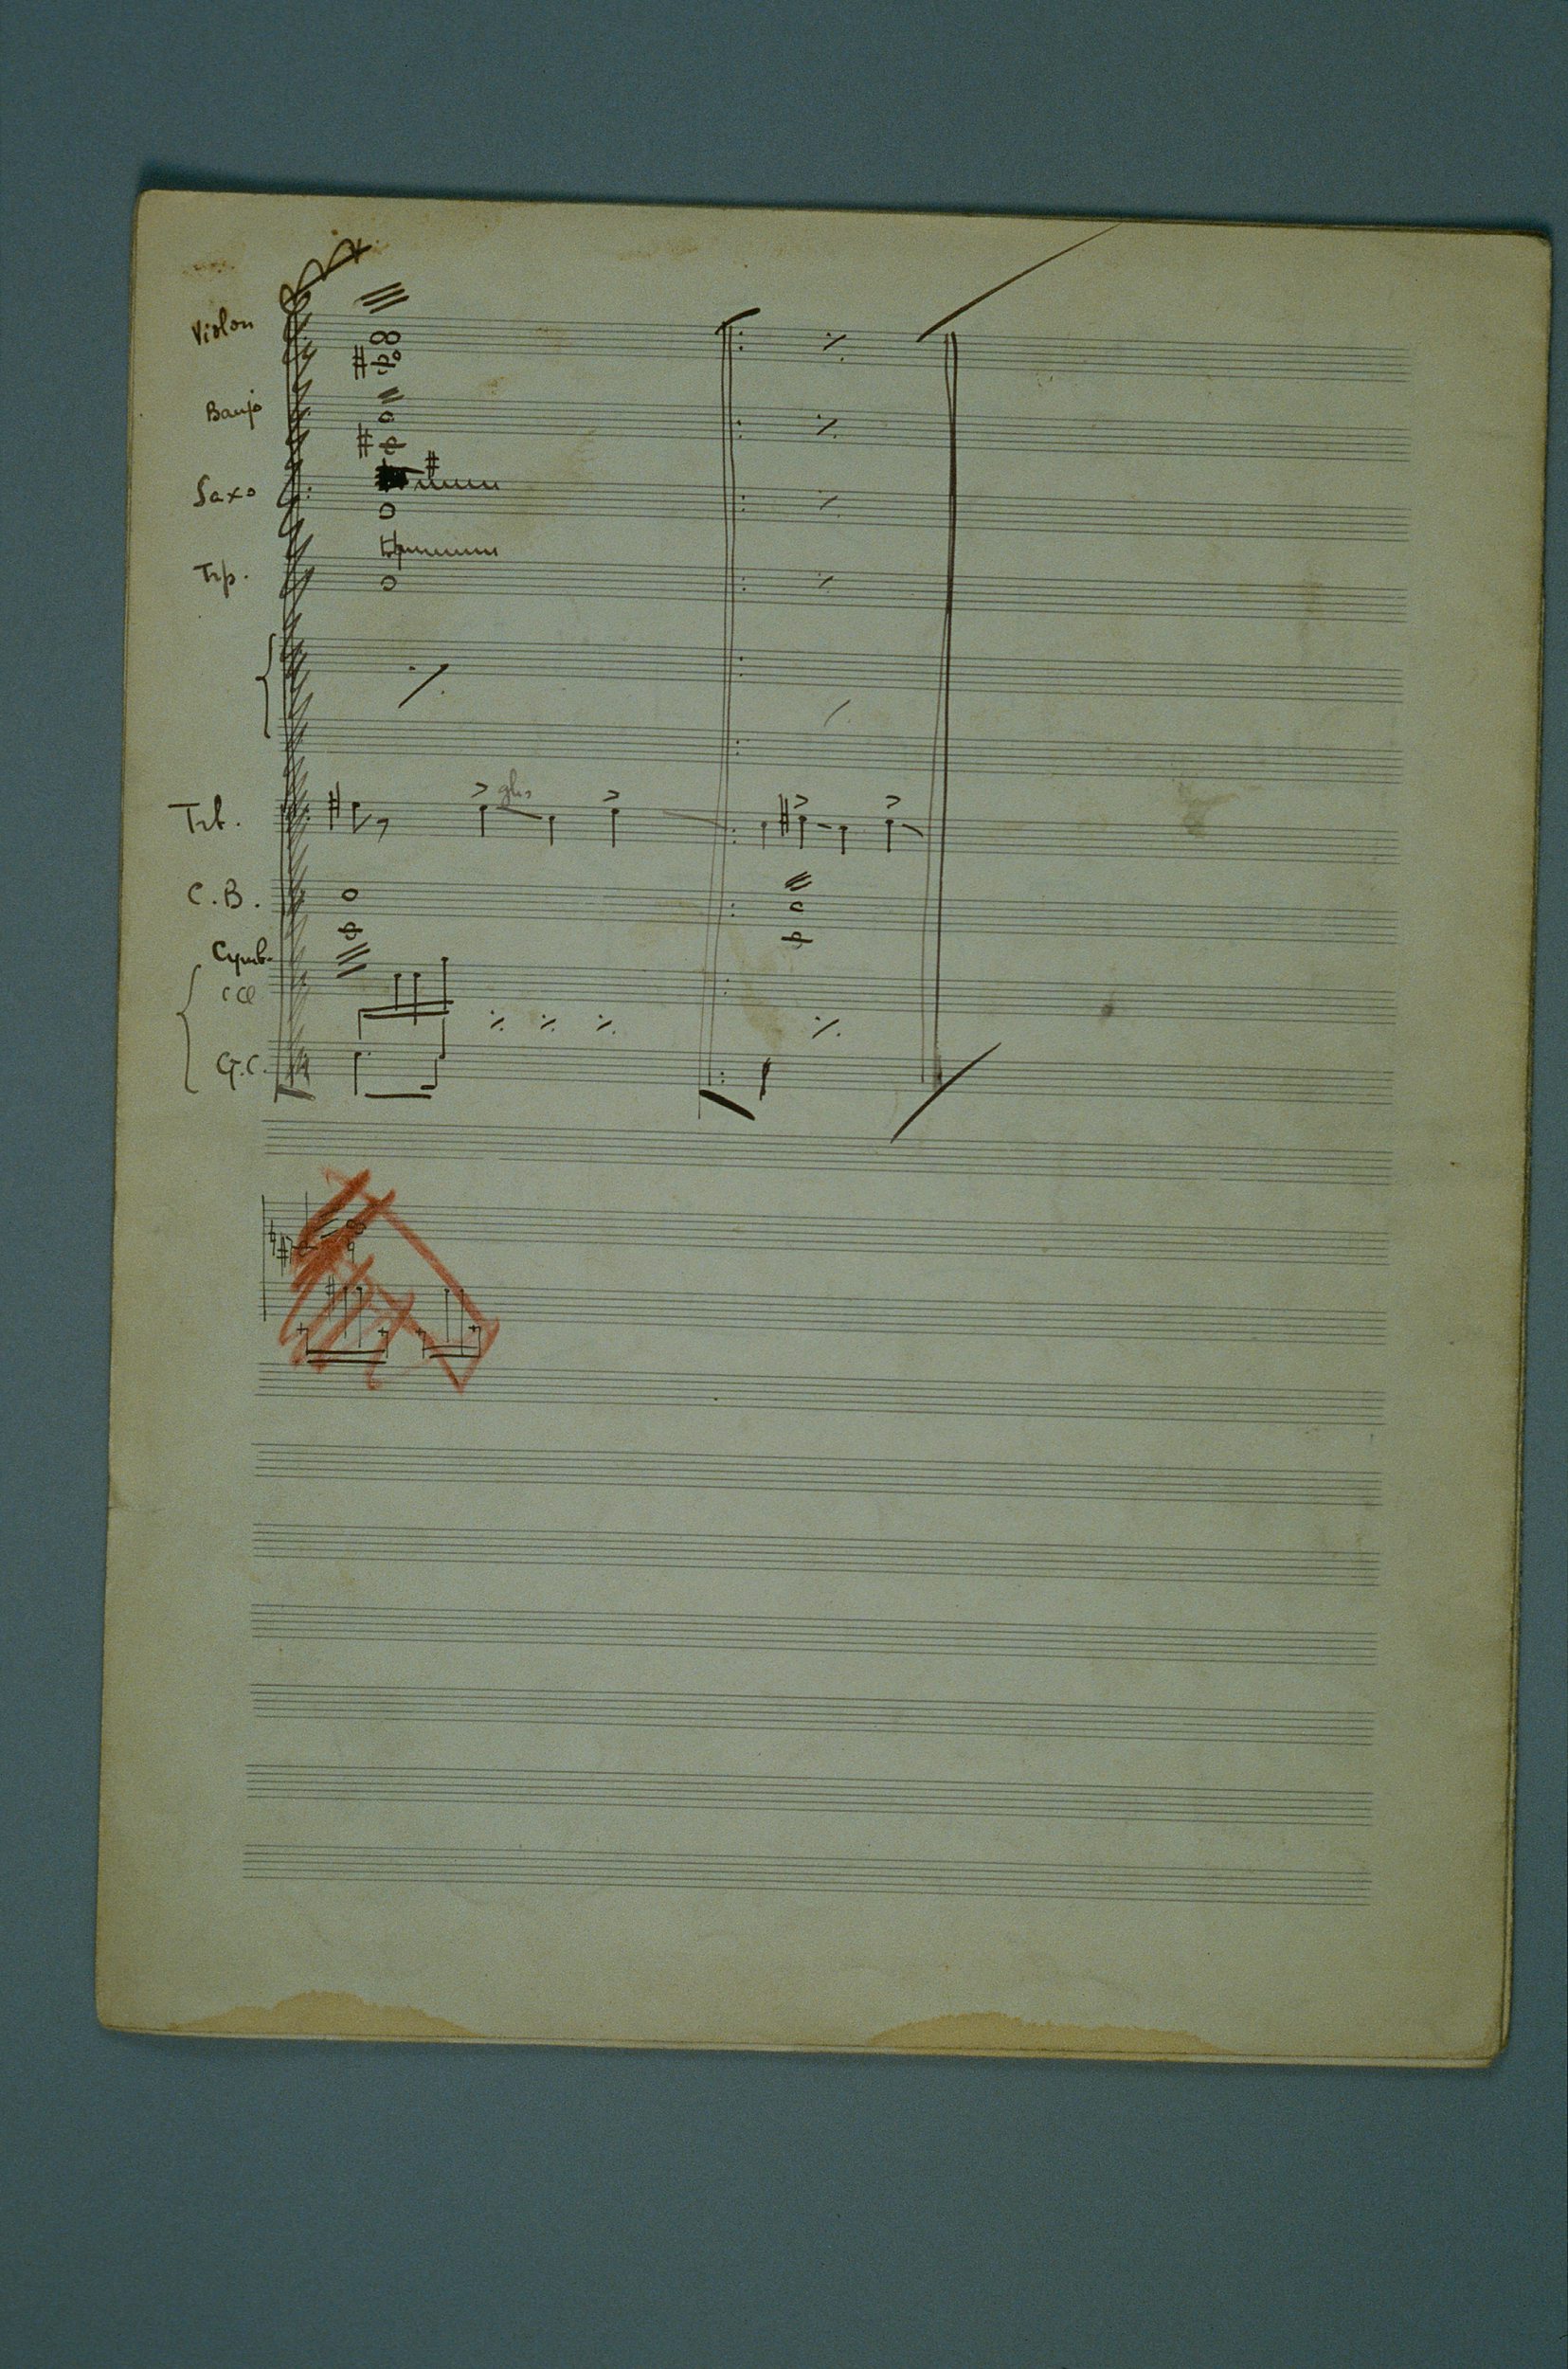 Violon
Banjo
Saxo
Trp.
Trb.
glis
C.B.
Cymb.
G.C.